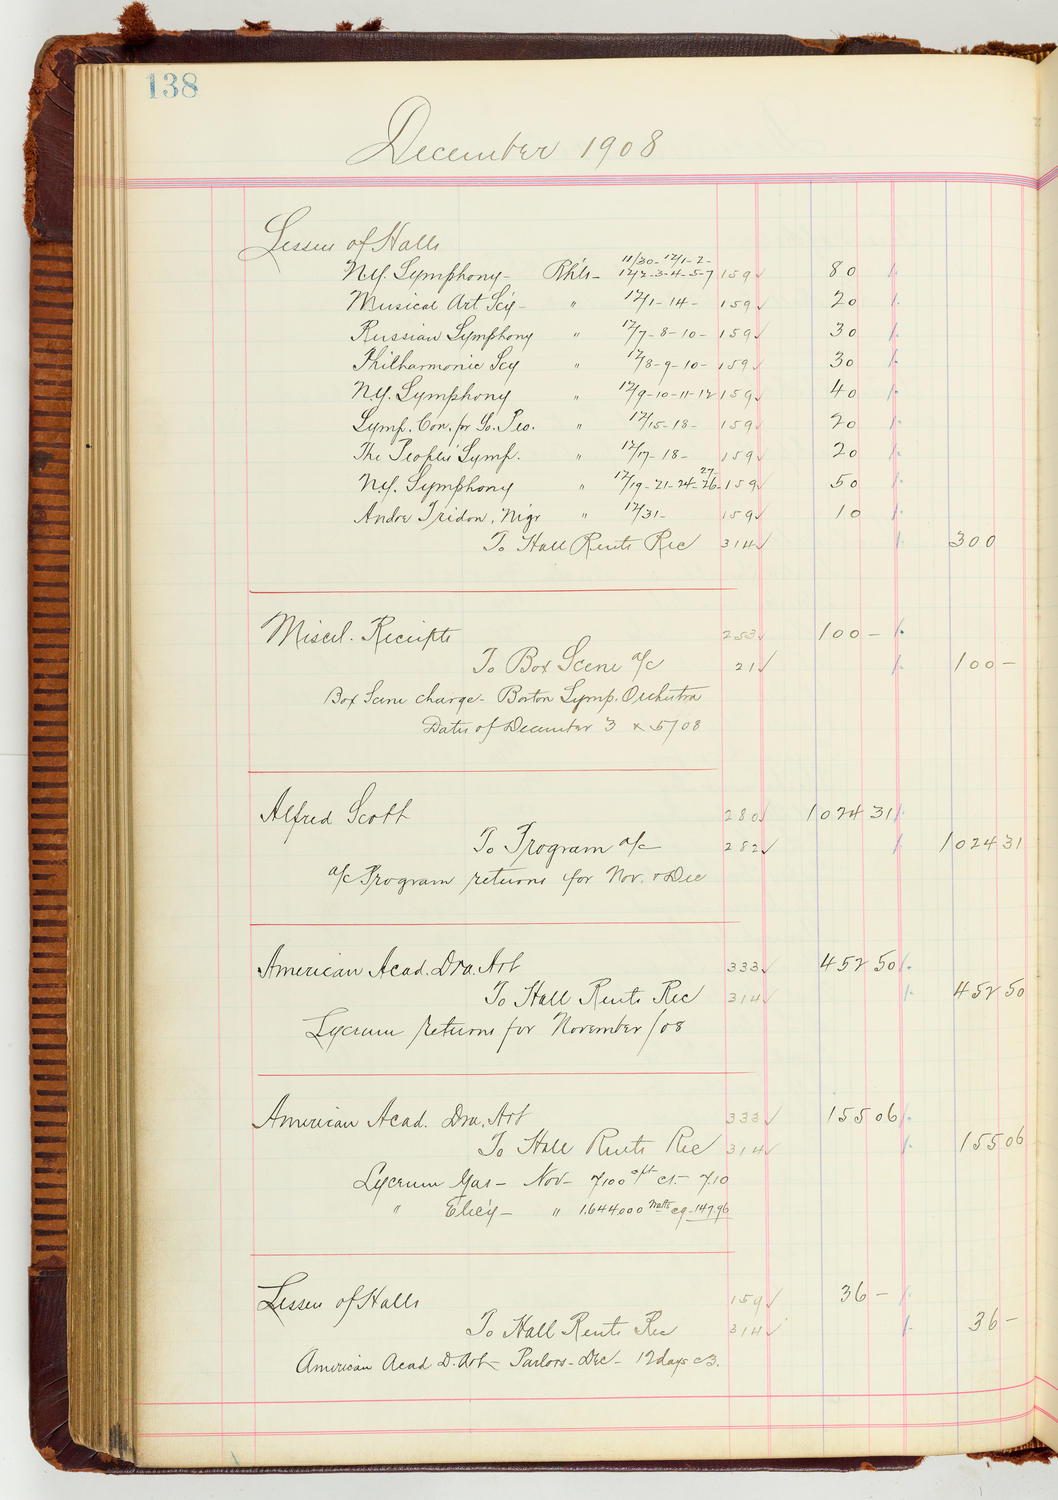 138
December 1908
Lessees of Halls
N.Y. Symphony - Rh'ls - 11/30 - 12/1 - 2 - 12/2 - 3 - 4 - 5 - 7 159 ✓ 80
Musical Art Scy - " 12/1 - 14 - 159 ✓ 20
Russian Symphony " 12/7 - 8 - 10 - 159 ✓ 30
Philharmonic Scy " 12/8 - 9 - 10 - 159 ✓ 30
N.Y. Symphony " 12/9 - 10 - 11 - 12 159 ✓ 40
Symp. Con. for Yo. Peo. " 12/15 - 18 - 159 ✓ 20
The Peoples' Symp. " 12/17 - 18 - 159 ✓ 20
N.Y. Symphony " 12/19 - 21 - 24 - 26 - 27 - 159 ✓ 50
Andre Tridon, Mgr " 12/31 - 159 ✓ 10
To Hall Rents Rec 314 ✓ 300
Miscel. Receipts 253 ✓ 100 -
To Box Scene a/c 21 ✓ 100 -
Box Scene charge - Boston Symp. Orchestra
Dates of December 3 & 5/08
Alfred Scott 280 ✓ 1024 31
To Program a/c 282 ✓ 1024 31
a/c Program returns for Nov. & Dec
American Acad. Dra. Art 333 ✓ 452 50
To Hall Rents Rec 314 ✓ 452 50
Lyceum returns for November/08
American Acad. Dra. Art 333 ✓ 155 06
To Hall Rents Rec 314 ✓ 155 06
Lyceum Gas - Nov - 7100 cft c1 - 7.10
" Elec'y - " 1.644.000 Watts c9 - 147.96
Lessees of Halls 159 ✓ 36 -
To Hall Rents Rec 314 ✓ 36 -
American Acad D. Art - Parlors - Dec - 12 days c3.